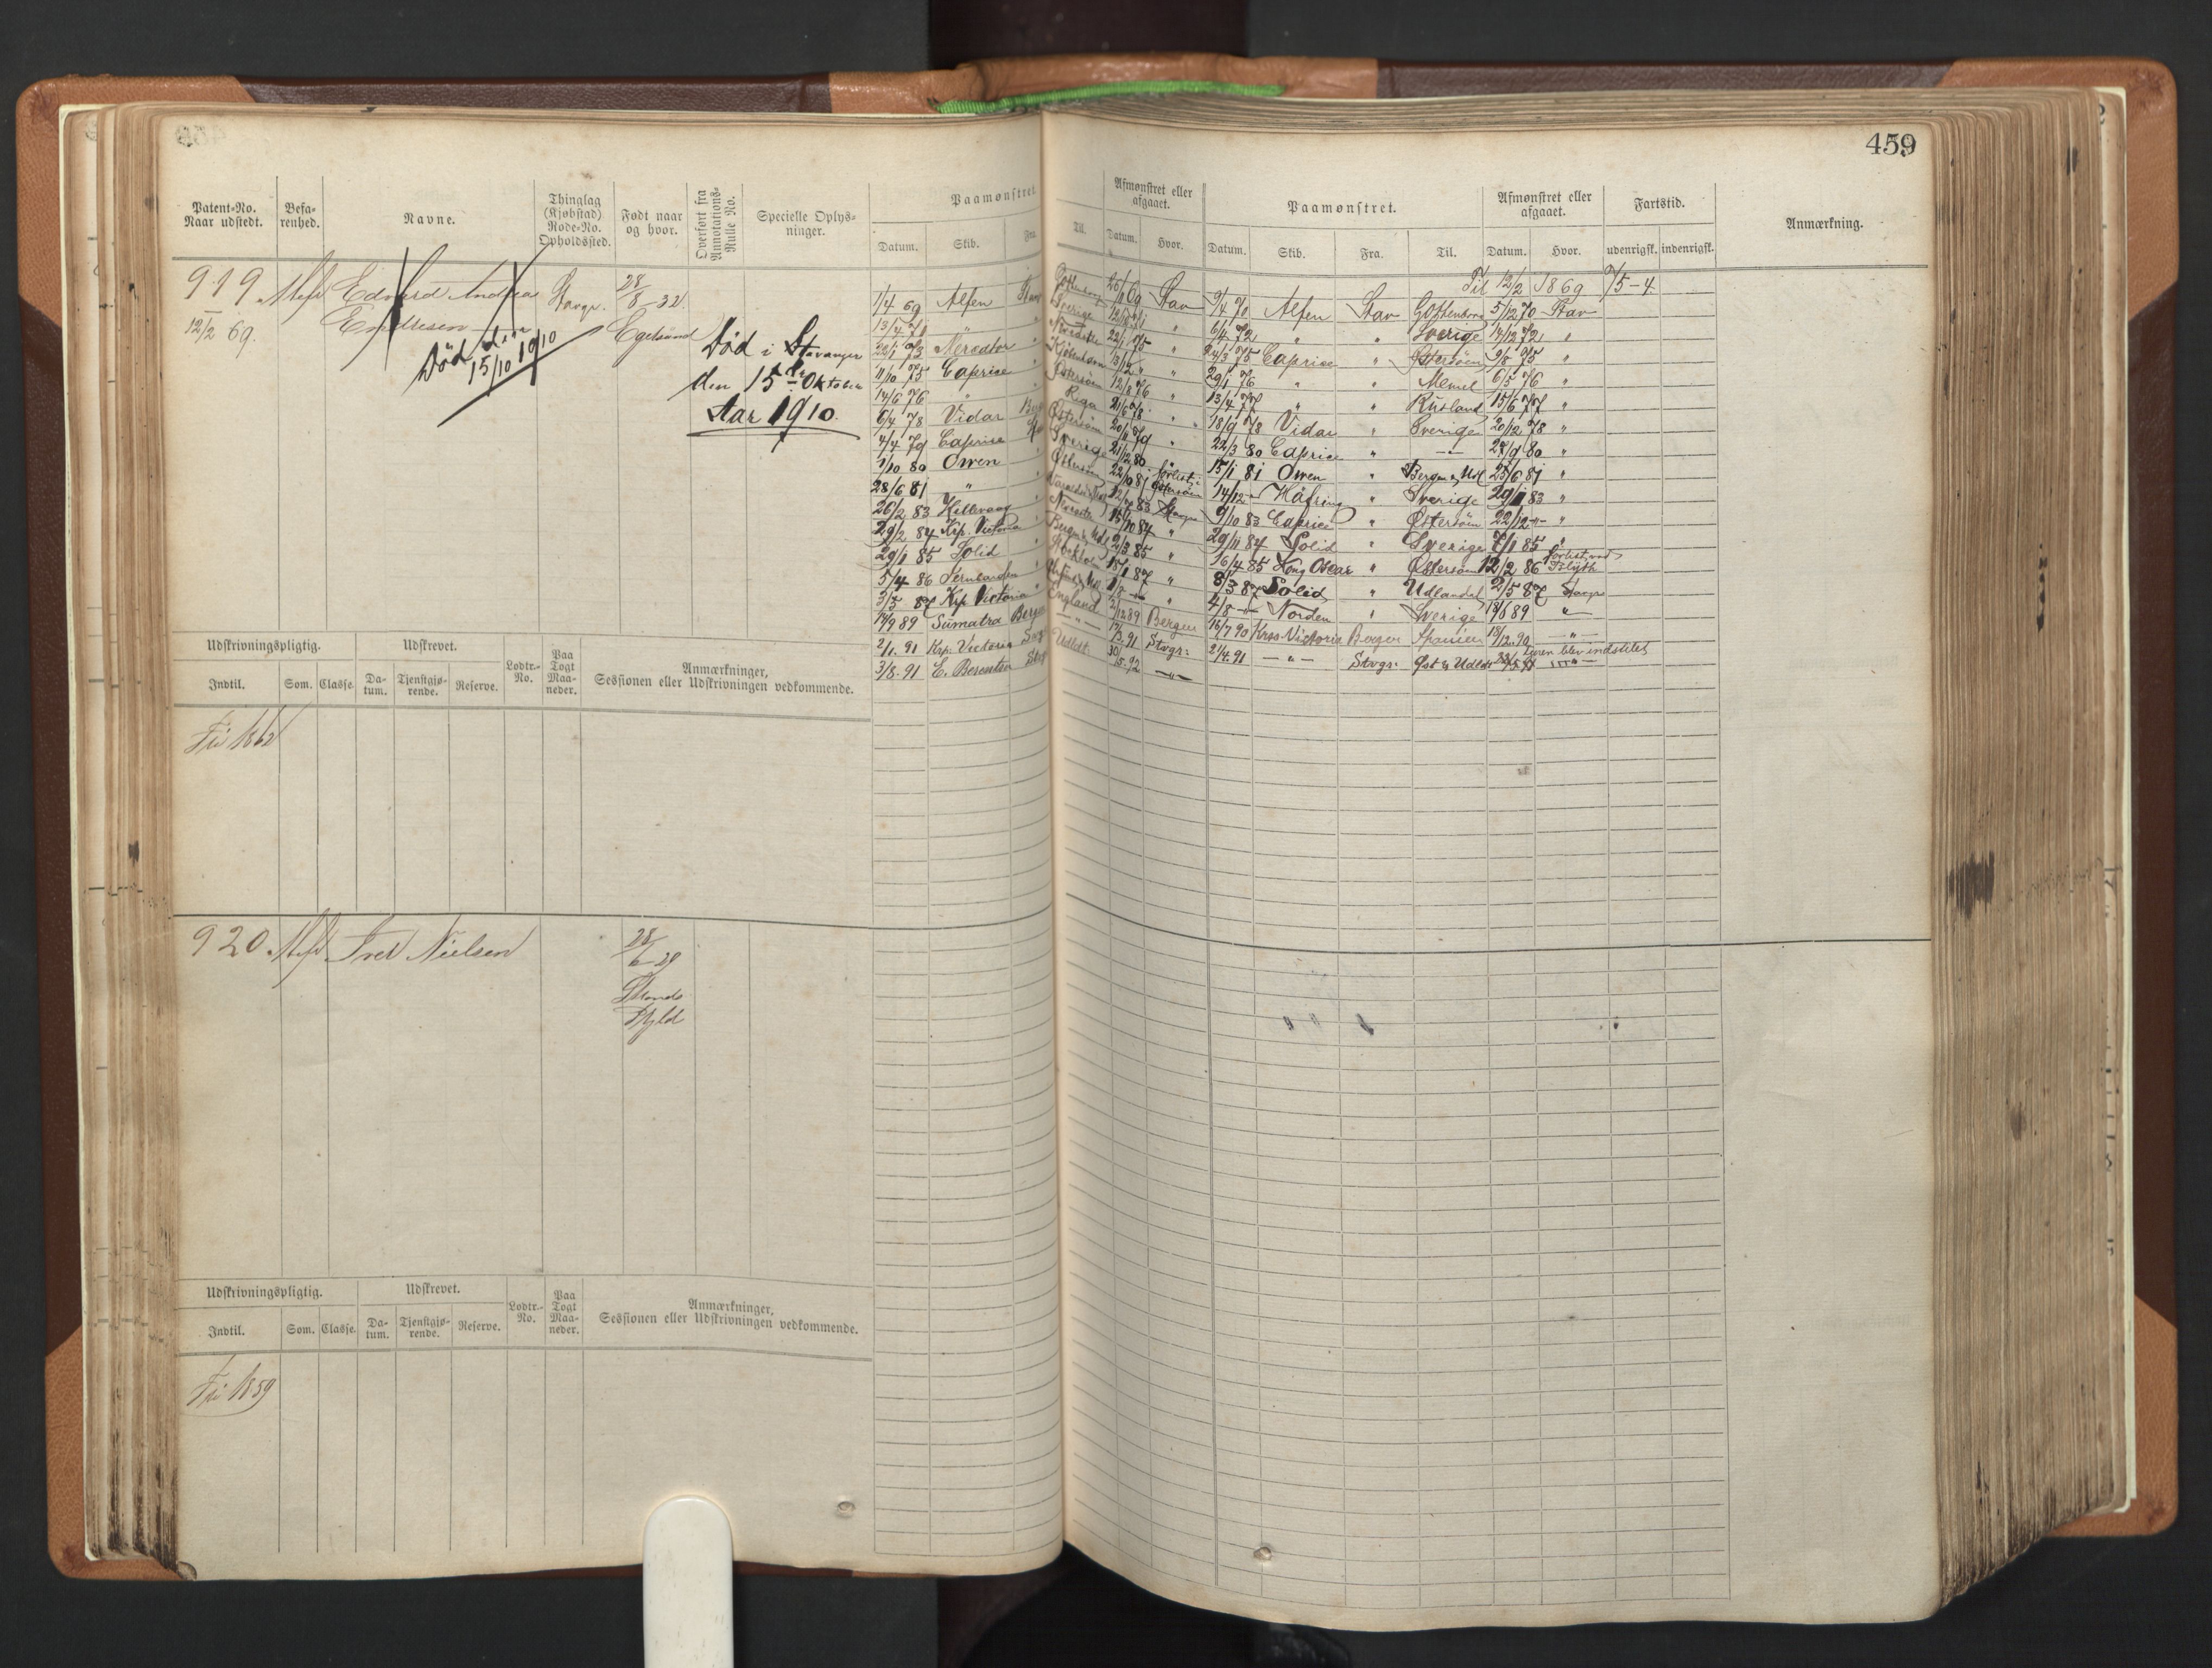 459
Patent=No. Naar udstedt.
Befa=renhed.
Navne.
Thinglag (Kjøbstad) Rode=No. Opholdssted.
Født naar og hvor.
Overført fra Annotations=Rulle No.
Specielle Oplys=ninger.
Paamønstret
Afmønstret eller afgaaet.
Paamønstret.
Afmønstret eller afgaaet.
Fartstid.
Anmærkning.
Datum. Skib. Fra Til. Datum. Hvor. Datum. Skib. Fra. Til. Datum. Hvor. udenrigsk. indenrigsk.
919
12/2 69.
Edvard Andreas
Endresen
Død d.
15/10 1910
Stavgr.
28/8-32
Egersund
Død i Stavanger
den 15de Oktober
Aar 1910.
Til 12/2 1869 7/5-4
1/4 69 Alfen Stav 26/11 69 Stav 9/4 70 Alfen Stav Gottenborg 5/12 70 Stav
13/4 71 " " Sverige " 6/4 72 " " Sverige 14/12 72 "
22/1 73 Mercator " 22/1 75 " 24/3 75 Caprice " Østersøen 9/8 75 "
11/10 75 Caprice " Kjøbenhavn 13/12 " " 29/1 76 " " Memel 6/5 76 "
14/6 76 " " Østersøen 12/8 76 " 13/4 77 " " Rusland 15/6 77 "
6/4 78 Vidar Riga 21/6 78 " 18/9 78 Vidar " Sverige 20/12 78 "
4/4 79 Caprice Østersøen 20/11 79 " 22/3 80 Caprice " — 24/9 80 "
1/10 80 Owen " Sverige 21/12 80 15/1 81 Owen " Bergen & Udl 25/6 81 "
28/6 81 " " Østersøen 22/9 81 forlist i Østersøen 14/12 " Håfring " Sverige 29/1 83 "
26/2 83 Hellevaag " 83 Stavgr 9/10 83 Caprice " Østersøen 22/12 " "
29/2 84 Krp. Victoria " 15/10 84 " 29/11 84 Solid " Sverige 7/1 85 "
29/1 85 Solid " Bergen & Udl 2/3 85 " 16/4 85 Kong Oscar " Østersøen 12/2 86 forlist ved Blyth
5/4 86 Jernbarden " Stockholm 18/1 87 " 8/3 87 Solid " Udlandet 2/5 87 Stavgr
3/5 87 Krp Victoria " 4/8 — Norden " Sverige 18/6 89 "
14/9 89 Sumatra Bergen England 2/12 89 Bergen 16/7 90 Krss. Victoria Bergen Spanien 18/12 90 — " —
2/1. 91 Krp. Victoria Stvgr — " — 17/3. 91 Stvgr: 21/4. 91 — " — Stvgr: Øst & Udldt — " —
Turen blev indstillet
3/8. 91 E. Berentsen Stvgr Udldt. 30/5. 92 — " —
Udskrivningspligtig.
Udskrevet.
Lodtr.=No.
Paa Togt Maa=neder.
Anmærkninger, Sessionen eller Udskrivningen vedkommende.
Indtil. Som. Classe. Da=tum. Tjenstgjø=rende. Reserve.
Fri 1862
920
Ivel Nielsen
28/6-29
Strands
Prgld
Udskrivningspligtig.
Udskrevet.
Lodtr.=No.
Paa Togt Maa=neder.
Anmærkninger, Sessionen eller Udskrivningen vedkommende.
Indtil. Som. Classe. Da=tum. Tjenstgjø=rende. Reserve.
Fri 1859